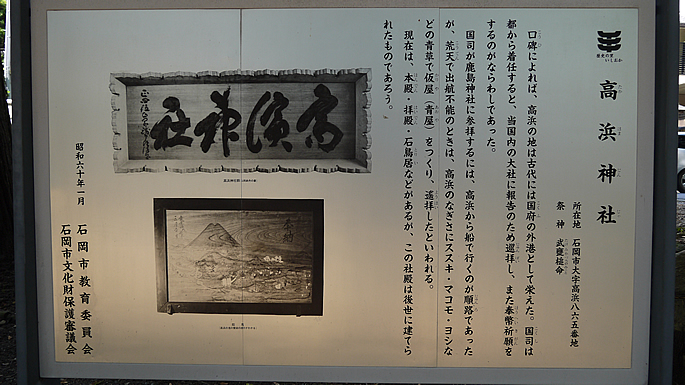 歴史の里
いしおか
高浜神社
所在地 石岡市大字高浜八六五番地
祭神 武甕槌命
口碑によれば、高浜の地は古代には国府の外港として栄えた。国司は
都から着任すると、当国内の大社に報告のため巡拝し、また奉幣祈願を
するのがならわしであった。
国司が鹿島神社に参拝するには、高浜から船で行くのが順路であった
が、荒天で出航不能のときは、高浜のなぎさにススキ・マコモ・ヨシな
どの青草で仮屋(青屋)をつくり、遥拝したといわれる。
現在は、本殿・拝殿・石鳥居などがあるが、この社殿は後世に建てら
れたものであろう。
高濱神社
奉納
昭和六十年一月
石岡市教育委員会
石岡市文化財保護審議会